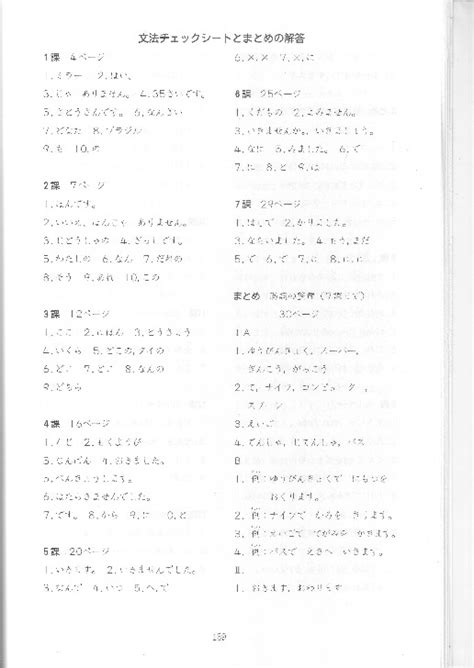 文法チェックシートとまとめの解答
1課 4ページ
1.ミラー 2.はい、
3.じゃ ありません。 4.35さいです。
5.さとうさんです。 6.なんさい
7.どなた 8.ブラジル
9.も 10.の
2課 7ページ
1.ほんです。
2.いいえ、 ありません。
3.じどうしゃの 4.ざっしです。
5.わたしの 6.なん 7.だれの
8.そう 9.あれ 10.この
3課 12ページ
1.ここ 2.にほん 3.とうきょう
4.いくら 5.どこの、タイの
6.どこ 7.どこ 8.なんの
9.どちら
4課 16ページ
2.もくようび
4.おきました。
5.べんきょう
6.はたらきませんでした。
7.です。 8.から 9.に 10.と
5課 20ページ
1.いきます。 2.いきません。
3.なんで 4.いつ 5.へ、で
6.×、× 7.×、に
6課 25ページ
1.くだもの 2.よみません。
3.いきませんか。いきましょう。
4.なに 5.みました。 6.で
7.に 8.と 9.に
7課 29ページ
1.はしで 2.かりました。
3.ならいました。 4.もう、まだ
5.で 6.で 7.に 8.に
まとめ
30ページ
I A
1.ゆうびんきょく、スーパー、
ぎんこう、がっこう
2.て、ナイフ、
スプーン
3.えいご
4.でんしゃ、じてんしゃ、バス
B
1.例：ゆうびんきょくで にもつを
おくります。
2.例：ナイフで かみを きります。
3.例：えいごで てがみを かきます。
4.例：バスで えきへ いきます。
II
1.おきます、おわります
159